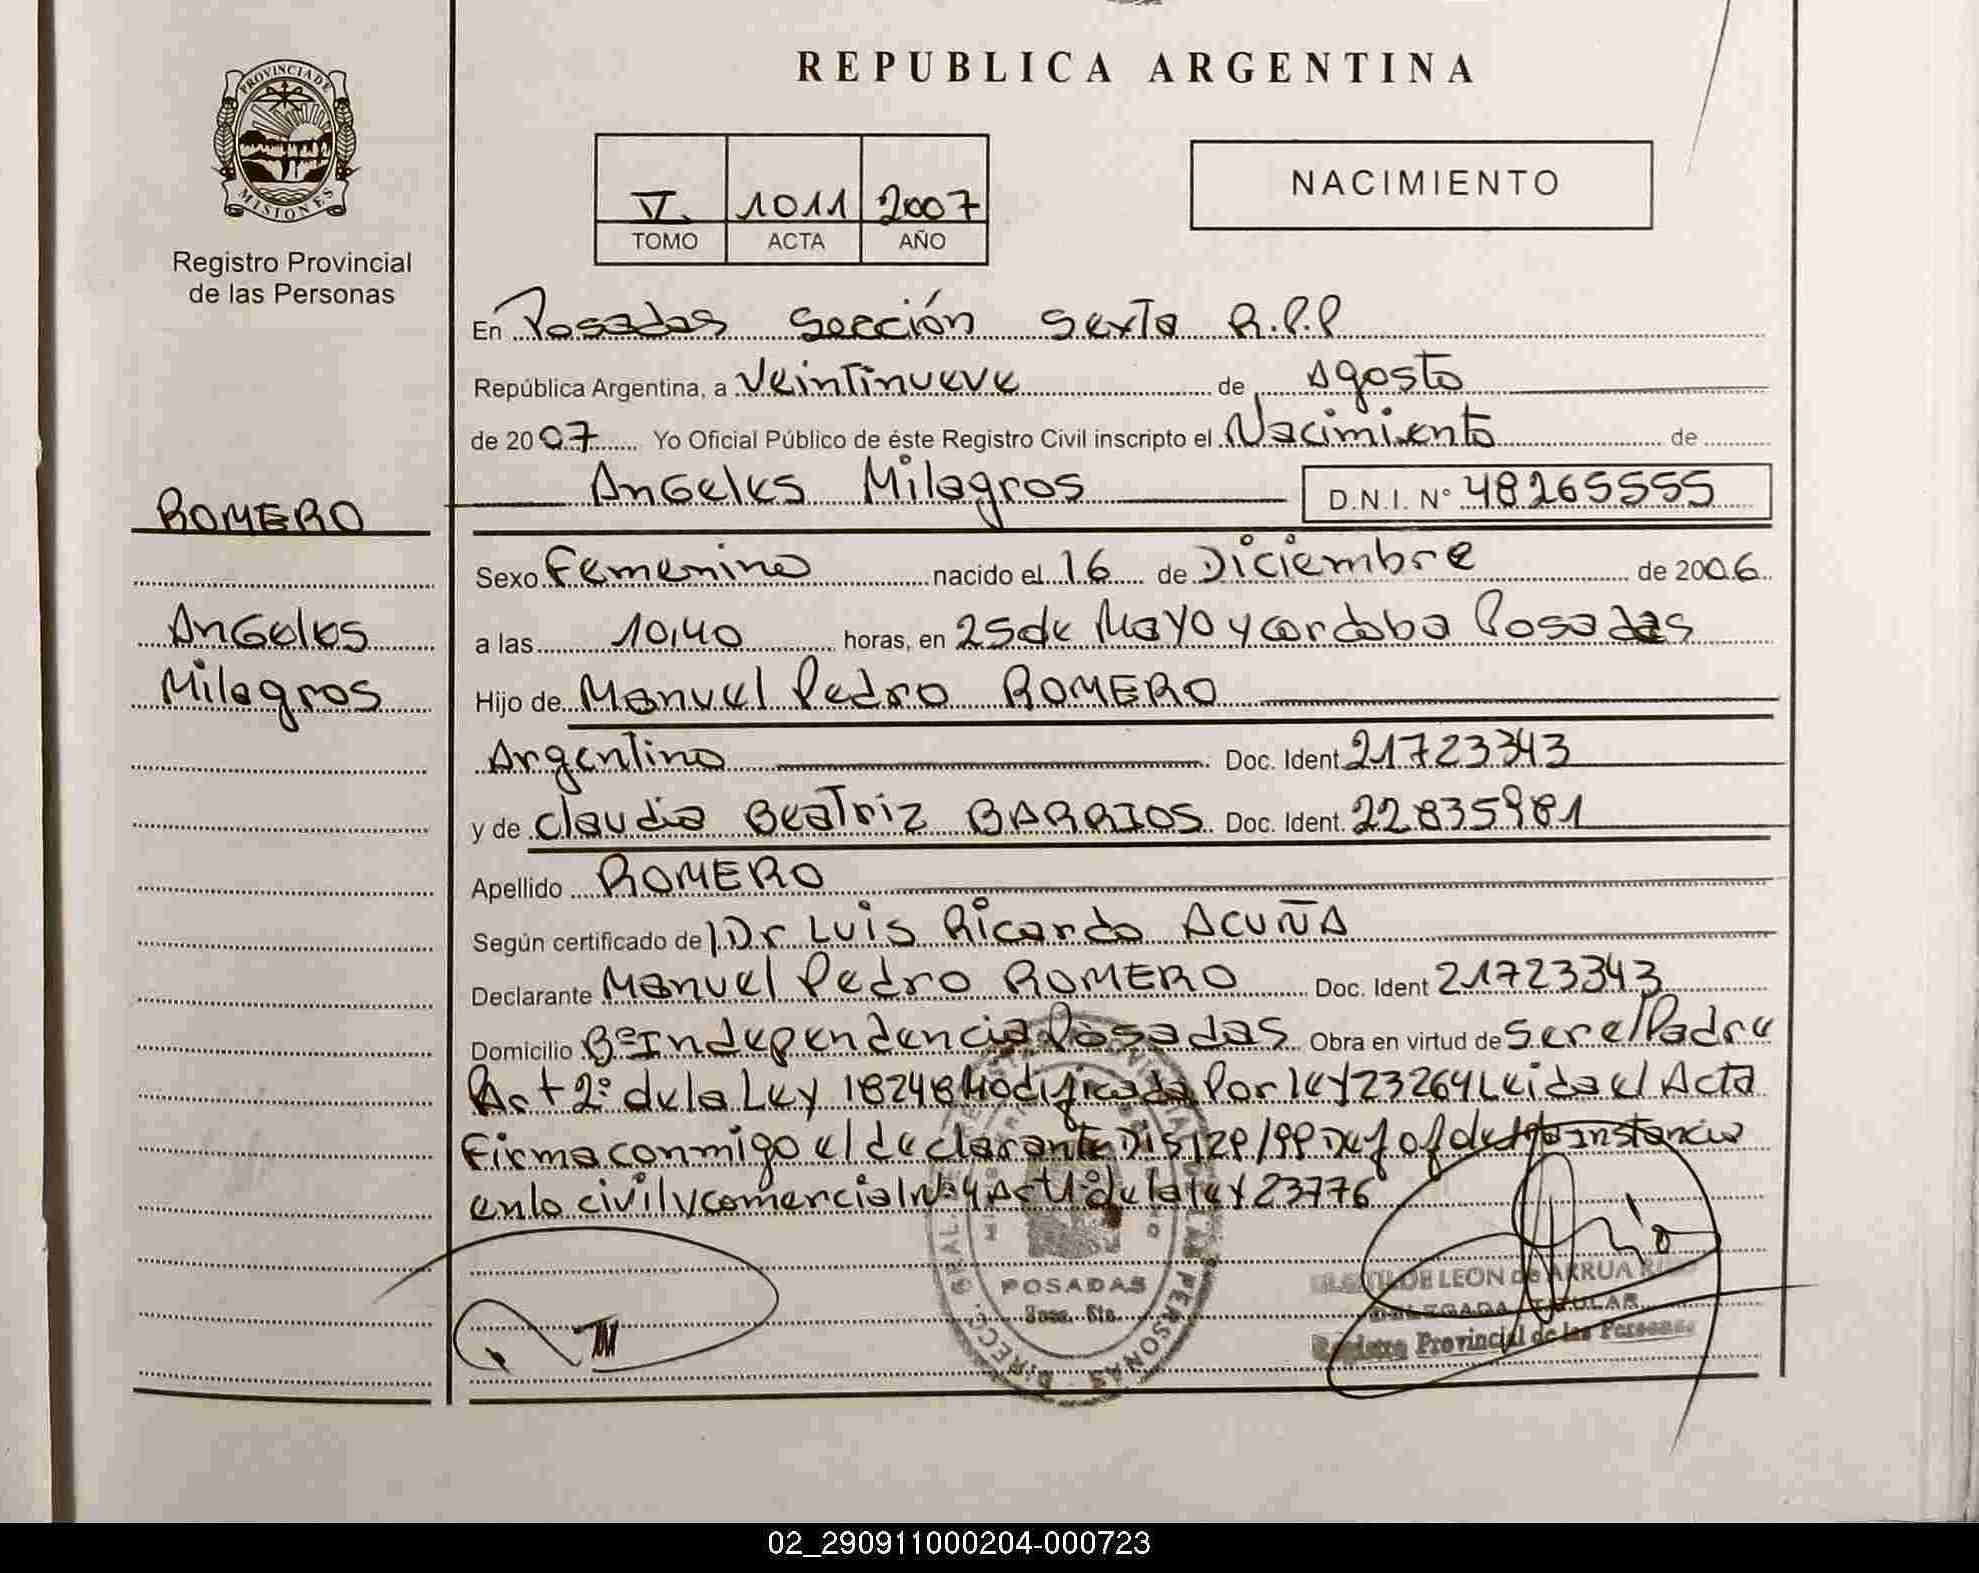 REPUBLICA ARGENTINA
PROVINCIA DE
MISIONES
Registro Provincial
de las Personas
V. 1011 2007
TOMO ACTA AÑO
NACIMIENTO
En Posadas Sección Sexta R.P.P
República Argentina, a Veintinueve de Agosto
de 2007 Yo Oficial Público de éste Registro Civil inscripto el Nacimiento de
Angeles Milagros D.N.I. Nº 48265555
ROMERO
Angeles
Milagros
Sexo Femenino nacido el 16 de Diciembre de 2006
a las 10,40 horas, en 25 de Mayo y cordoba Posadas
Hijo de Manuel Pedro ROMERO
Argentino Doc. Ident 21723343
y de Claudia Beatriz BARRIOS Doc. Ident. 22835981
Apellido ROMERO
Según certificado de Dr Luis Ricardo ACUÑA
Declarante Manuel Pedro ROMERO Doc. Ident 21723343
Domicilio Bº Independencia Posadas Obra en virtud de Ser el Padre
Art 2º de la Ley 18248 Modificada Por ley 23264 Leida el Acta
Firma conmigo el declarante Dis 129/99 Def of de instancia
en lo civil y comercial Nº 4 Act 1º de la ley 23776
POSADAS
Secc. 6ta.
PERSONAS
LEON de ARRUA
DELEGADA TITULAR
Registro Provincial de las Personas
02_290911000204-000723